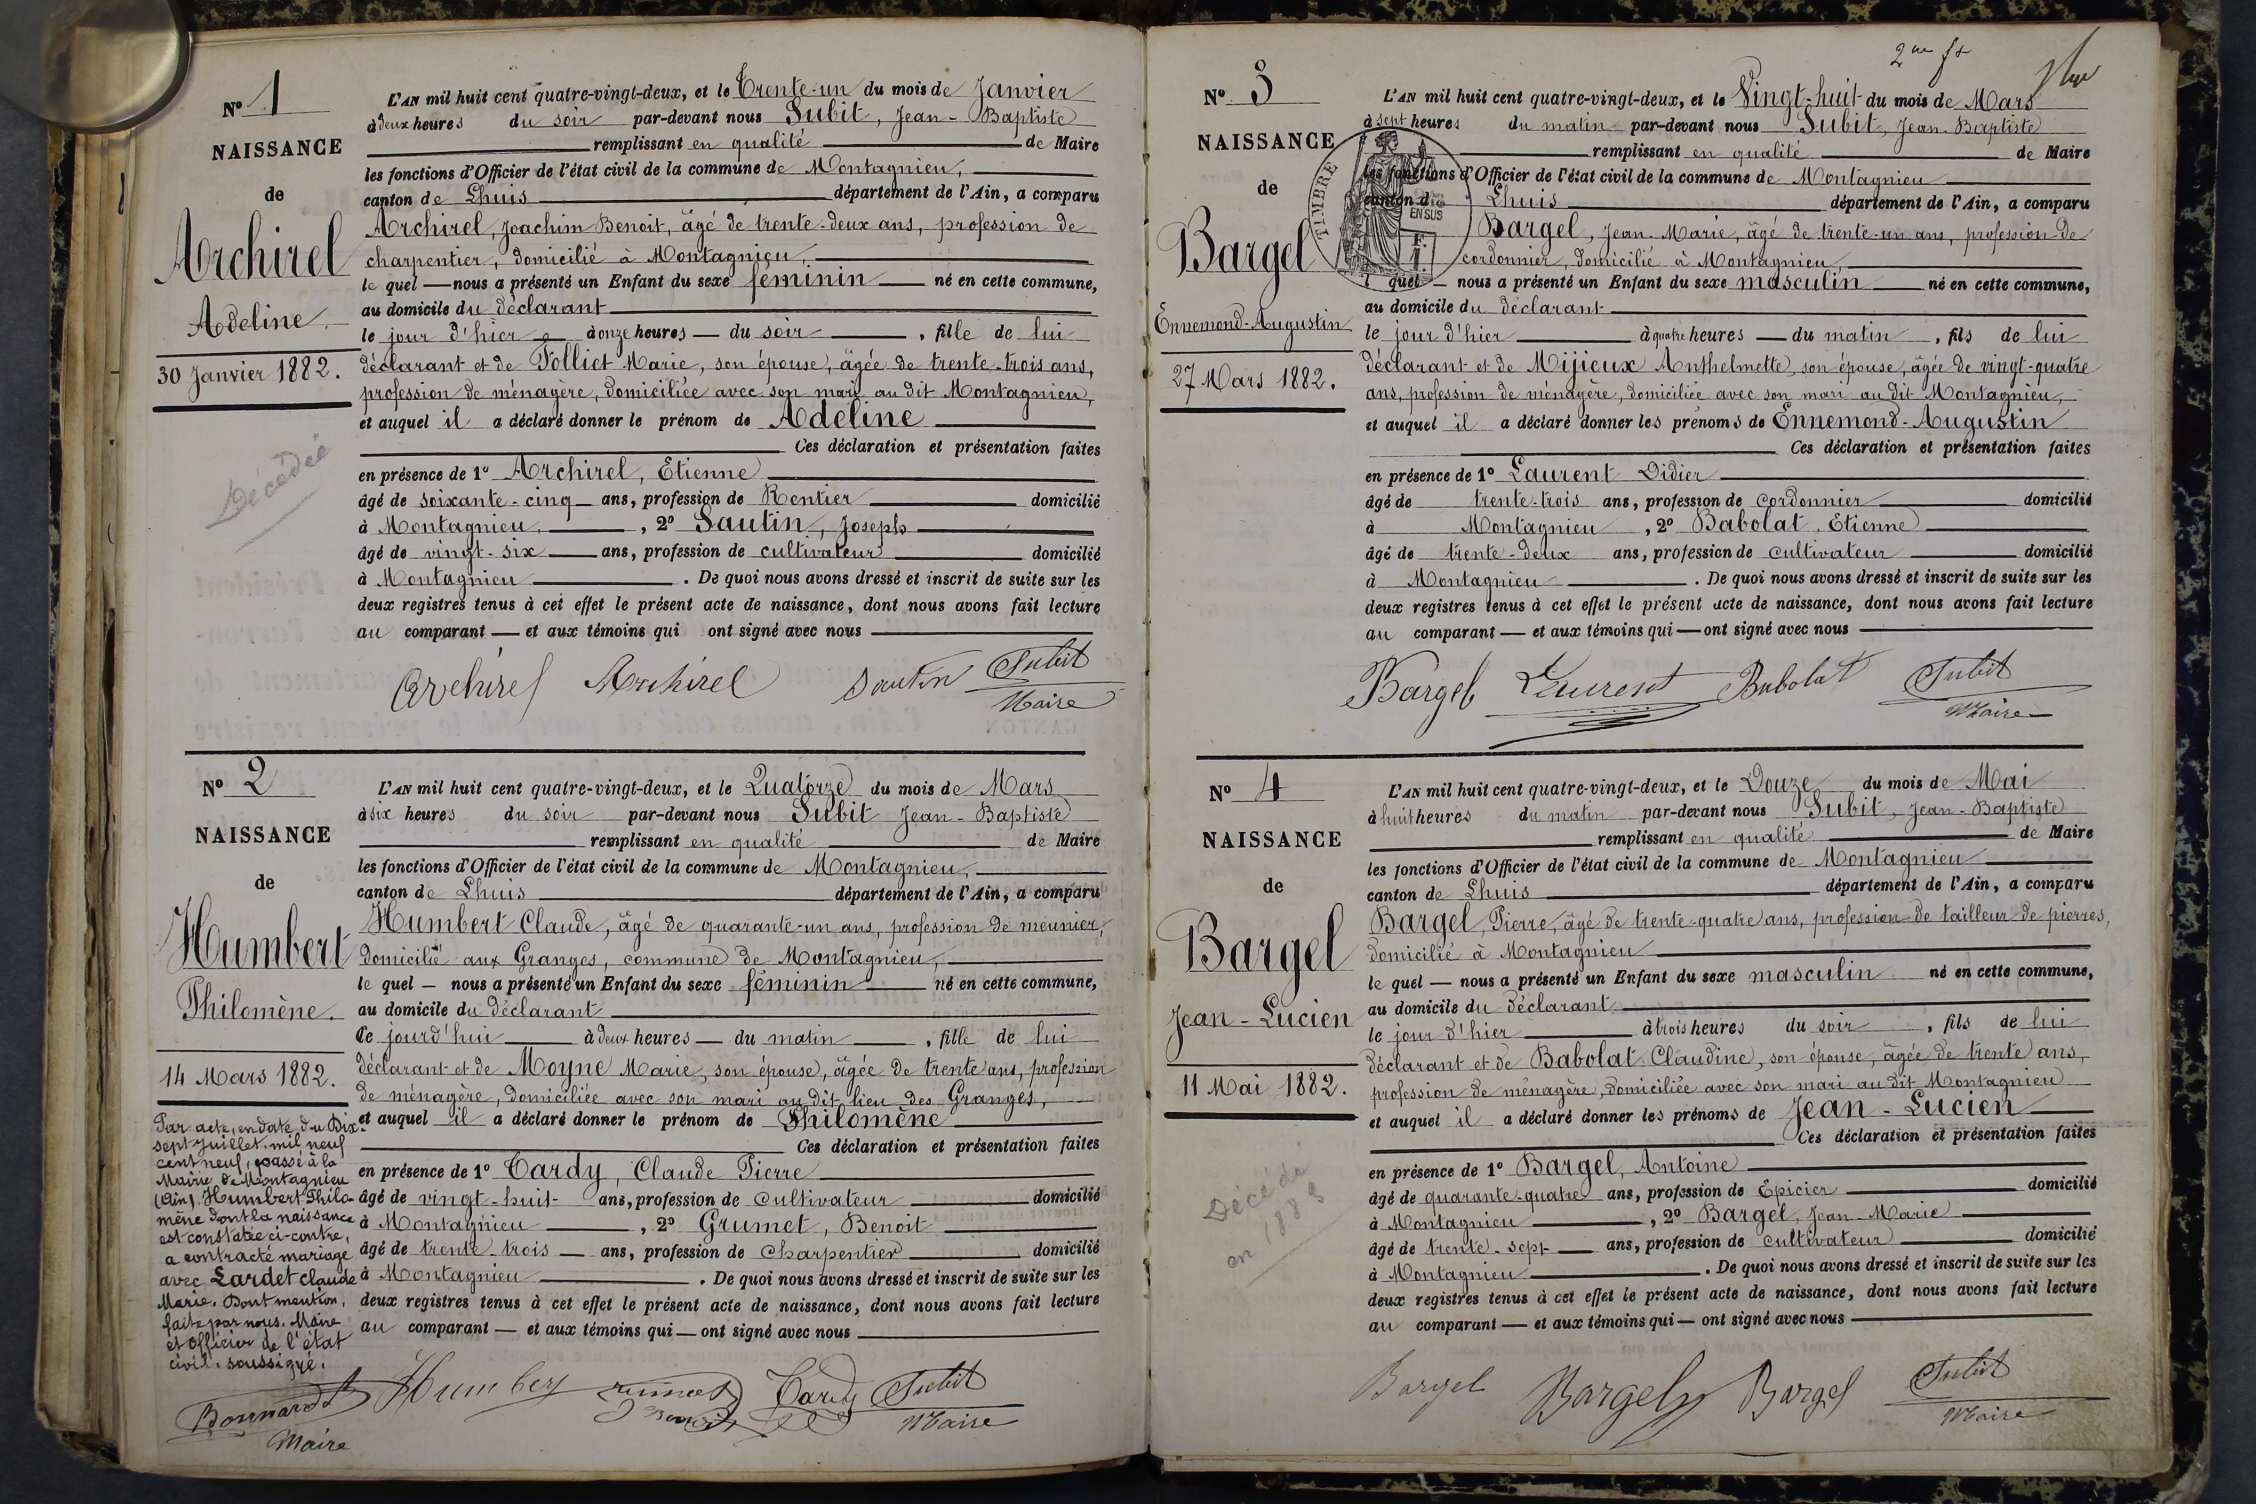 Nº 1
NAISSANCE
de
Archirel
Adeline.
30 Janvier 1882.
Décédée
L'AN mil huit cent quatre-vingt-deux, et le Trente-un du mois de Janvier
à deux heures du soir par-devant nous Subit, Jean-Baptiste
remplissant en qualité de Maire
les fonctions d'Officier de l'état civil de la commune de Montagnieu,
canton de Lhuis département de l'Ain, a comparu
Archirel, Joachim Benoit, âgé de trente-deux ans, profession de
charpentier, domicilié à Montagnieu,
le quel nous a présenté un Enfant du sexe féminin né en cette commune,
au domicile du déclarant
le jour d'hier à onze heures du soir, fille de lui
déclarant et de Folliet Marie, son épouse, âgée de trente-trois ans,
profession de ménagère, domiciliée avec son mari au dit Montagnieu,
et auquel il a déclaré donner le prénom de Adeline
Ces déclaration et présentation faites
en présence de 1º Archirel, Etienne
âgé de soixante-cinq ans, profession de Rentier domicilié
à Montagnieu, 2º Sautin, Joseph
âgé de vingt-six ans, profession de cultivateur domicilié
à Montagnieu. De quoi nous avons dressé et inscrit de suite sur les
deux registres tenus à cet effet le présent acte de naissance, dont nous avons fait lecture
au comparant et aux témoins qui ont signé avec nous
Archirel Archirel Sautin Subit
Maire
Nº 2
NAISSANCE
de
Humbert
Philomène.
14 Mars 1882.
Par acte, en date du Dix-
sept Juillet mil neuf
cent neuf, passé à la
Mairie de Montagnieu
(Ain). Humbert Philo-
mène dont la naissance
est constatée ci-contre,
a contracté mariage
avec Lardet Claude
Marie. Dont mention,
faite par nous. Maire
et officier de l'état
civil, soussigné.
Bonnardt
Maire
L'AN mil huit cent quatre-vingt-deux, et le Quatorze du mois de Mars
à six heures du soir par-devant nous Subit Jean-Baptiste
remplissant en qualité de Maire
les fonctions d'Officier de l'état civil de la commune de Montagnieu,
canton de Lhuis département de l'Ain, a comparu
Humbert Claude, âgé de quarante-un ans, profession de meunier,
domicilié aux Granges, commune de Montagnieu,
le quel nous a présenté un Enfant du sexe féminin né en cette commune,
au domicile du déclarant
Ce jourd'hui à deux heures du matin, fille de lui
déclarant et de Moyne Marie, son épouse, âgée de trente ans, profession
de ménagère, domiciliée avec son mari au dit lieu des Granges,
et auquel il a déclaré donner le prénom de Philomène
Ces déclaration et présentation faites
en présence de 1º Tardy, Claude Pierre
âgé de vingt-huit ans, profession de cultivateur domicilié
à Montagnieu, 2º Grumet, Benoit
âgé de trente-trois ans, profession de Charpentier domicilié
à Montagnieu. De quoi nous avons dressé et inscrit de suite sur les
deux registres tenus à cet effet le présent acte de naissance, dont nous avons fait lecture
au comparant et aux témoins qui ont signé avec nous
Humbert Tardy Subit
Maire
2me ft
Nº 3
NAISSANCE
de
Bargel
Ennemond-Augustin
27 Mars 1882.
TIMBRE
EN SUS
L'AN mil huit cent quatre-vingt-deux, et le Vingt-huit du mois de Mars
à sept heures du matin par-devant nous Subit, Jean-Baptiste
remplissant en qualité de Maire
les fonctions d'Officier de l'état civil de la commune de Montagnieu
canton de Lhuis département de l'Ain, a comparu
Bargel, Jean-Marie, âgé de trente-un ans, profession de
cordonnier, domicilié à Montagnieu
quel nous a présenté un Enfant du sexe masculin né en cette commune,
au domicile du déclarant
le jour d'hier à quatre heures du matin, fils de lui
déclarant et de Mijieux Anthelmette, son épouse, âgée de vingt-quatre
ans, profession de ménagère, domiciliée avec son mari au dit Montagnieu,
et auquel il a déclaré donner les prénoms de Ennemond-Augustin
Ces déclaration et présentation faites
en présence de 1º Laurent Didier
âgé de trente-trois ans, profession de cordonnier domicilié
à Montagnieu, 2º Babolat, Etienne
âgé de trente-deux ans, profession de cultivateur domicilié
à Montagnieu. De quoi nous avons dressé et inscrit de suite sur les
deux registres tenus à cet effet le présent acte de naissance, dont nous avons fait lecture
au comparant et aux témoins qui ont signé avec nous
Bargel Laurent Babolat Subit
Maire
Nº 4
NAISSANCE
de
Bargel
Jean-Lucien
11 Mai 1882.
Décédé
en 1883
L'AN mil huit cent quatre-vingt-deux, et le Douze du mois de Mai
à huit heures du matin par-devant nous Subit, Jean-Baptiste
remplissant en qualité de Maire
les fonctions d'Officier de l'état civil de la commune de Montagnieu
canton de Lhuis département de l'Ain, a comparu
Bargel, Pierre, âgé de trente-quatre ans, profession de tailleur de pierres,
domicilié à Montagnieu
le quel nous a présenté un Enfant du sexe masculin né en cette commune,
au domicile du déclarant
le jour d'hier à trois heures du soir, fils de lui
déclarant et de Babolat Claudine, son épouse, âgée de trente ans,
profession de ménagère, domiciliée avec son mari au dit Montagnieu
et auquel il a déclaré donner les prénoms de Jean-Lucien
Ces déclaration et présentation faites
en présence de 1º Bargel, Antoine
âgé de quarante-quatre ans, profession de Epicier domicilié
à Montagnieu, 2º Bargel, Jean-Marie
âgé de trente-sept ans, profession de cultivateur domicilié
à Montagnieu. De quoi nous avons dressé et inscrit de suite sur les
deux registres tenus à cet effet le présent acte de naissance, dont nous avons fait lecture
au comparant et aux témoins qui ont signé avec nous
Bargel Bargel Bargel Subit
Maire